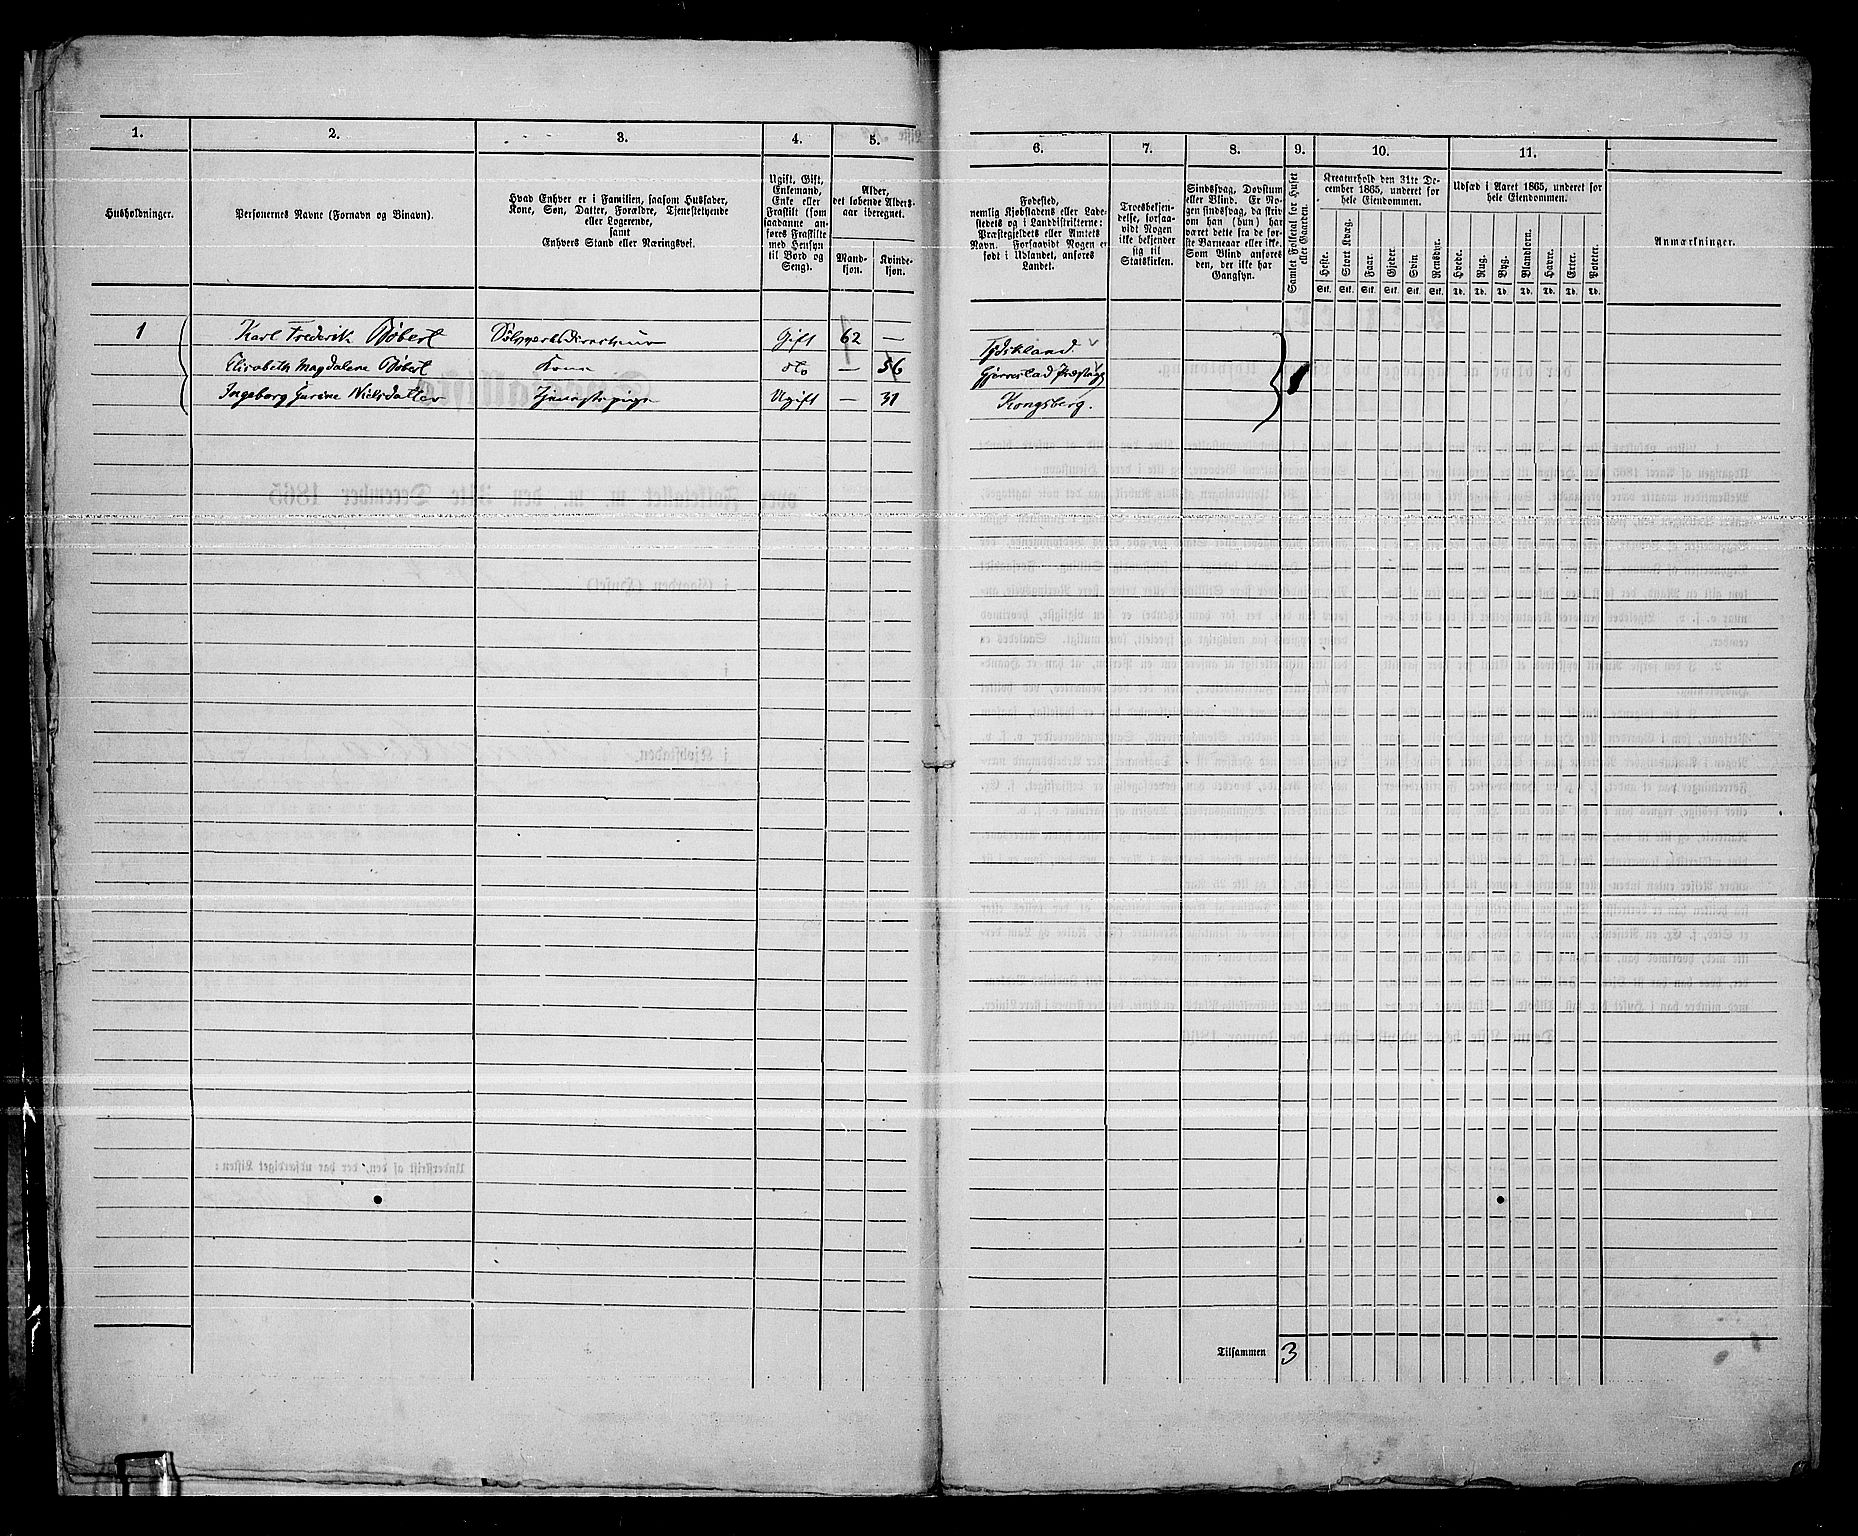 1.
2.
3.
4.
5.
Husholdninger.
Personernes Navne (Fornavn og Binavn).
Hvad Enhver er i Familien, saasom Husfader,
Kone, Søn, Datter, Forældre, Tjenestetyende
eller Logerende,
samt
Enhvers Stand eller Næringsvei.
Ugift, Gift,
Enkemand,
Enke eller
Fraskilt (som
saadanne an-
føres Fraskilte
med Hensyn
til Bord og
Seng).
Alder,
det løbende Alders-
aar iberegnet.
Mand-
kjøn.
Kvinde-
kjøn.
1 Karl Frederik Bøbert Sølvverksdirecteur Gift 62 —
Elisabeth Magdalene Bøbert Kone dto — 56
Ingeborg Gurine Nielsdatter Tjenestepige Ugift — 31
6.
7.
8.
9.
10.
11.
Fødested,
nemlig Kjøbstadens eller Lade-
stedets og i Landdistrikterne:
Præstegjeldets eller Amtets
Navn. Forsaavidt Nogen er
født i Udlandet, anføres
Landet.
Troesbekjen-
delse, forsaa-
vidt Nogen
ikke bekjender
sig til
Statskirken.
Sindssvag, Døvstum
eller Blind. Er No-
gen sindssvag, da skriv
om han (hun) har
været dette fra de før-
ste Barneaar eller ikke.
Som Blind anføres
den, der ikke har
Gangsyn.
Samlet Folketal for Huset
eller Gaarden.
Kreaturhold den 31te De-
cember 1865, underet for
hele Eiendommen.
Heste.
Stort Kvæg.
Faar.
Gjeder.
Svin.
Rensdyr.
Stk. Stk. Stk. Stk. Stk. Stk.
Udsæd i Aaret 1865, underet for
hele Eiendommen.
Hvede.
Rug.
Byg.
Blandkorn.
Havre.
Erter.
Poteter.
Td. Td. Td. Td. Td. Td. Td.
Anmærkninger.
Tydskland.
Kongsberg.
Tilsammen 3